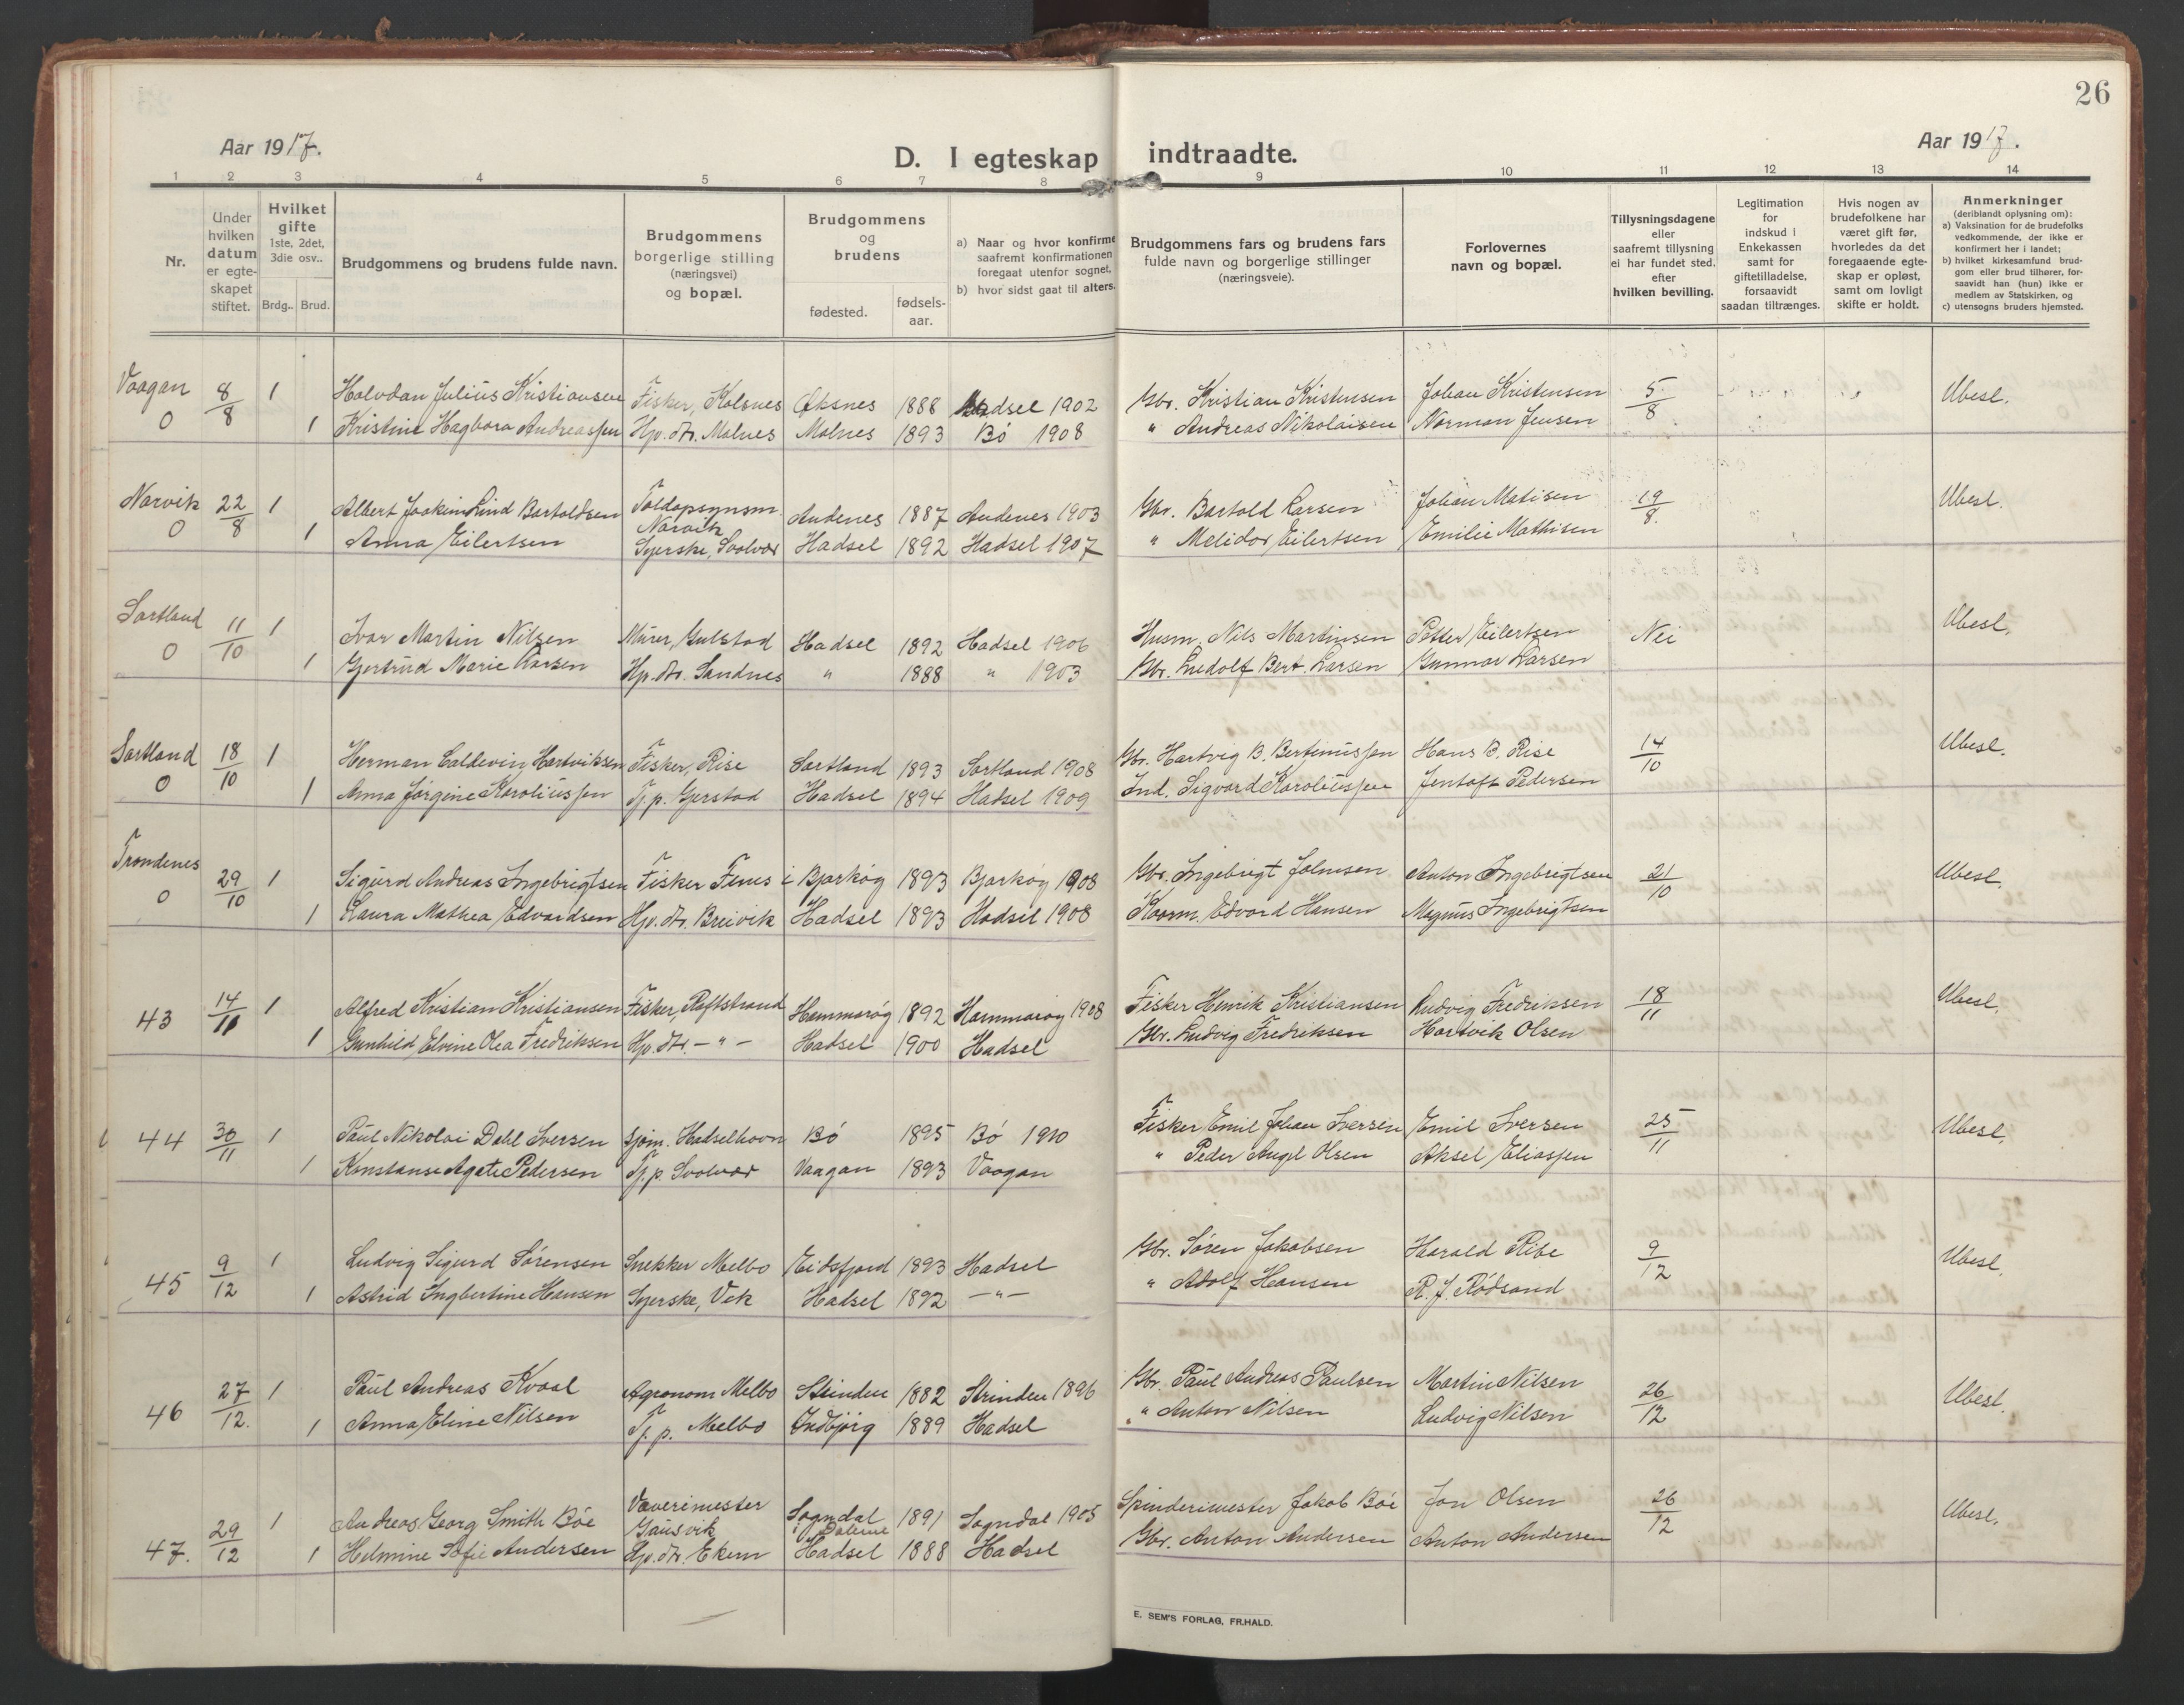 26
Aar 1917.
D. I egteskap indtraadte.
Aar 1917.
1 2 3 4 5 6 7 8 9 10 11 12 13 14
Nr.
Under hvilken datum er egte-skapet stiftet.
Hvilket gifte 1ste, 2det, 3die osv..
Brdg.. Brud.
Brudgommens og brudens fulde navn.
Brudgommens borgerlige stilling (næringsvei) og bopæl.
Brudgommens og brudens
fødested.
fødsels-aar.
a) Naar og hvor konfirme
saafremt konfirmationen
foregaat utenfor sognet,
b) hvor sidst gaat til alters.
Brudgommens fars og brudens fars
fulde navn og borgerlige stillinger
(næringsveie).
Forlovernes
navn og bopæl.
Tillysningsdagene
eller
saafremt tillysning
ei har fundet sted,
efter
hvilken bevilling.
Legitimation
for
indskud i
Enkekassen
samt for
giftetilladelse,
forsaavidt
saadan tiltrænges.
Hvis nogen av
brudefolkene har
været gift før,
hvorledes da det
foregaaende egte-
skap er opløst,
samt om lovligt
skifte er holdt.
Anmerkninger
(deriblandt oplysning om):
a) Vaksination for de brudefolks
vedkommende, der ikke er
konfirmert her i landet;
b) hvilket kirkesamfund brud-
gom eller brud tilhører, for-
saavidt han (hun) ikke er
medlem av Statskirken, og
c) utensogns bruders hjemsted.
Vaagan 0 8/8 1 Halvdan Julius Kristiansen Fisker, Kolsnes Øksnes 1888 Hadsel 1902 Gbr. Kristian Kristensen Johan Kristensen 5/8 Ubesl.
1 Kristine Hagbora Andreassen Hp. dtr. Malnes Malnes 1893 Bö 1908 " Andreas Nikolaisen Norman Jensen
Narvik 0 22/8 1 Albert Joakim Lind Bartoldsen Toldopsynsm Narvik Andenes 1887 Andenes 1903 Gbr. Bartold Larsen Johan Matisen 19/8. Ubesl.
1 Anna Eilertsen Syerske, Svolvær Hadsel 1892 Hadsel 1907 " Melidor Eilertsen Emilie Mathisen
Sortland 0 11/10 1 Ivar Martin Nilsen Murer, Gulstad Hadsel 1892 Hadsel 1906 Husm. Nils Martinsen Petter Eilertsen Nei Ubesl.
1 Gjertrud Marie Larsen Hp. dtr. Sandnes " 1888 " 1903 Gbr. Ludolf Bert. Larsen Gunnar Larsen
Sortland 0 18/10 1 Herman Coldevin Hartviksen Fisker, Rise Sortland 1893 Sortland 1908 Gbr. Hartvig B. Bertinussen Hans B. Rise 14/10 Ubesl.
1 Anna Jörgine Karoliussen Tj. p. Gjerstad Hadsel 1894 Hadsel 1909 Ind. Sigvard Karoliussen Jentoft Pedersen
Trondenes 0 29/10 1 Sigurd Andreas Ingebrigtsen Fisker Finnes i Bjarköy 1893 Bjarköy 1908 Gbr. Ingebrigt Johnsen Anton Ingebrigtsen 21/10 Ubesl.
1 Laura Mathea Edvardsen Hp. dtr. Breivik Hadsel 1893 Hadsel 1908 Kaarm. Edvard Hansen Magnus Ingebrigtsen
43 14/11 1 Alfred Kristian Kristiansen Fisker, Raftstrand Hammaröy 1892 Hammaröy 1908 Fisker Henrik Kristiansen Ludvig Fredriksen 18/11 Ubesl.
1 Gunhild Elvine Olea Fredriksen Hp. dtr. – " – Hadsel 1900 Hadsel Gbr. Ludvig Fredriksen Hartvik Olsen
44 30/11 1 Paul Nikolai Dahl Iversen Sjöm. Hadselhavn Bö 1895 Bö 1910 Fisker Emil Johan Iversen Emil Iversen 25/11 Ubesl.
1 Konstanse Agate Pedersen Tj. p. Svolvær Vaagan 1893 Vaagan " Peder Angel Olsen Aksel Eliassen
45 9/12 1 Ludvig Sigurd Sörensen Snekker Melbo Eidsfjord 1893 Hadsel Gbr. Sören Jakobsen Harald Ribe 9/12 Ubesl.
1 Astrid Ingbertine Hansen Syerske, Vik Hadsel 1892 – " – " Adolf Hansen R. J. Rödsand
46 27/12. 1 Paul Andreas Kvaal Agronom Melbo Strinden 1882 Strinden 1896 Gbr. Paul Andreas Paulsen Martin Nilsen 26/12 Ubesl.
1 Anna Eline Nilsen Tj. p. Melbo Indbjörg 1889 Hadsel " Anton Nilsen Ludvig Nilsen
47. 29/12 1 Andreas Georg Smith Böe Væverimester Gausvik Sogndal i Dalene 1891 Sogndal 1905 Spinderimester Jakob Böe Jon Olsen 26/12 Ubesl.
1 Helmine Sofie Andersen Hp. dtr. Ekern Hadsel 1888 Hadsel Gbr. Anton Andersen Anton Andersen
E. SEM'S FORLAG, FR.HALD.